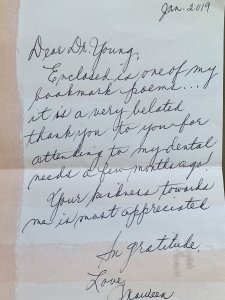 Jan. 2019
Dear Dr. Young,
Enclosed is one of my
bookmark poems...
it is a very belated
thank you to you for
attending to my dental
needs a few months ago.
Your kindness towards
me is most appreciated
In gratitude,
Love,
Maureen